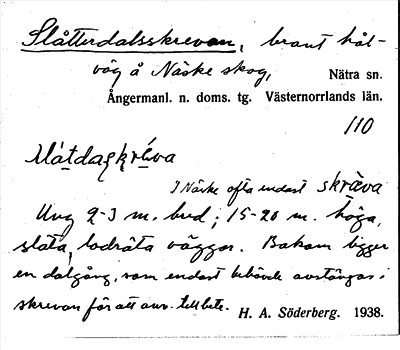 Slåtterdalsskrevan, brant hål-
väg å Näske skog, Nätra sn.
Ångermanl. n. doms. tg. Västernorrlands län.
110
I Näske ofta endast skrä̀va
Ung 2-3 m. bred; 15-20 m. höga,
släta, lodräta väggar. Bakom ligger
en dalgång, som endast behövde avstängas i
skrevan för att anv. till bete. H. A. Söderberg. 1938.